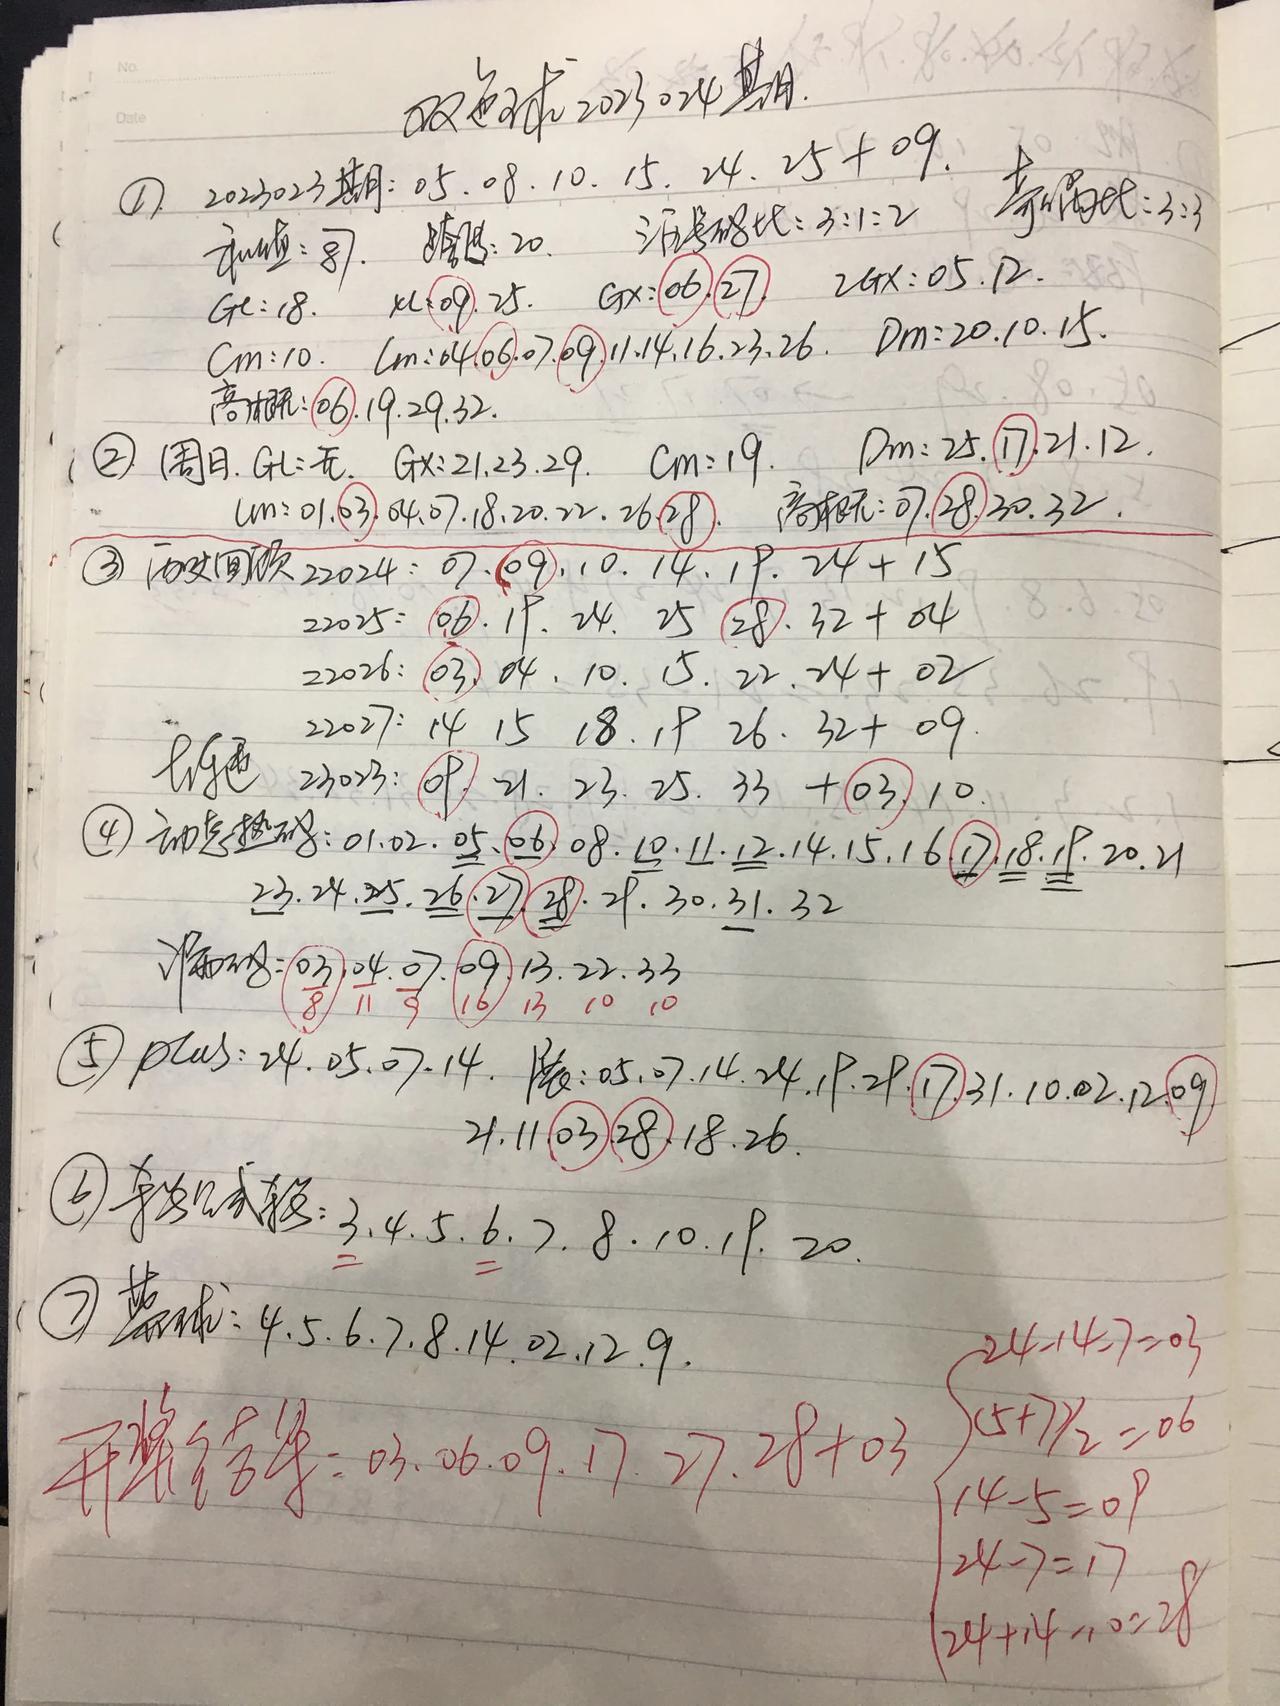 No.
Date
双色球2023024期.
① 2023023期: 05.08.10.15.24.25+09.
和值: 87. 跨: 20. 码比: 3:1:2 奇偶比: 3:3
GL: 18. XL: 09.25. GX: 06.27. 2GX: 05.12.
Cm: 10. Lm: 04.06.07.09.11.14.16.23.26. Dm: 20.10.15.
高概: 06.19.29.32.
② 周日. GL: 无. GX: 21.23.29. Cm: 19. Dm: 25.17.21.12.
Lm: 01.03.04.07.18.20.22.26.28. 高概: 07.28.30.32.
③ 历史回顾 22024: 07.09.10.14.19.24+15
22025: 06.19.24.25 28.32+04
22026: 03.04.10.15.22.24+02
22027: 14 15 18.19 26.32+09.
23023: 09.21.23.25.33 +03.10.
④ 热码: 01.02.05.06.08.10.11.12.14.15.16.17.18.19.20.21
23.24.25.26.27.28.29.30.31.32
漏码: 03.04.07.09.13.22.33
8 11 9 16 13 10 10
⑤ plus: 24.05.07.14. 05.07.14.24.19.29.17.31.10.02.12.09
21.11.03.28.18.26.
⑥ 公式: 3.4.5.6.7.8.10.19.20.
⑦ 蓝球: 4.5.6.7.8.14.02.12.9.
开奖结果: 03.06.09.17.27.28+03
24-14-7=03
(5+7)/2=06
14-5=09
24-7=17
24+14-10=28